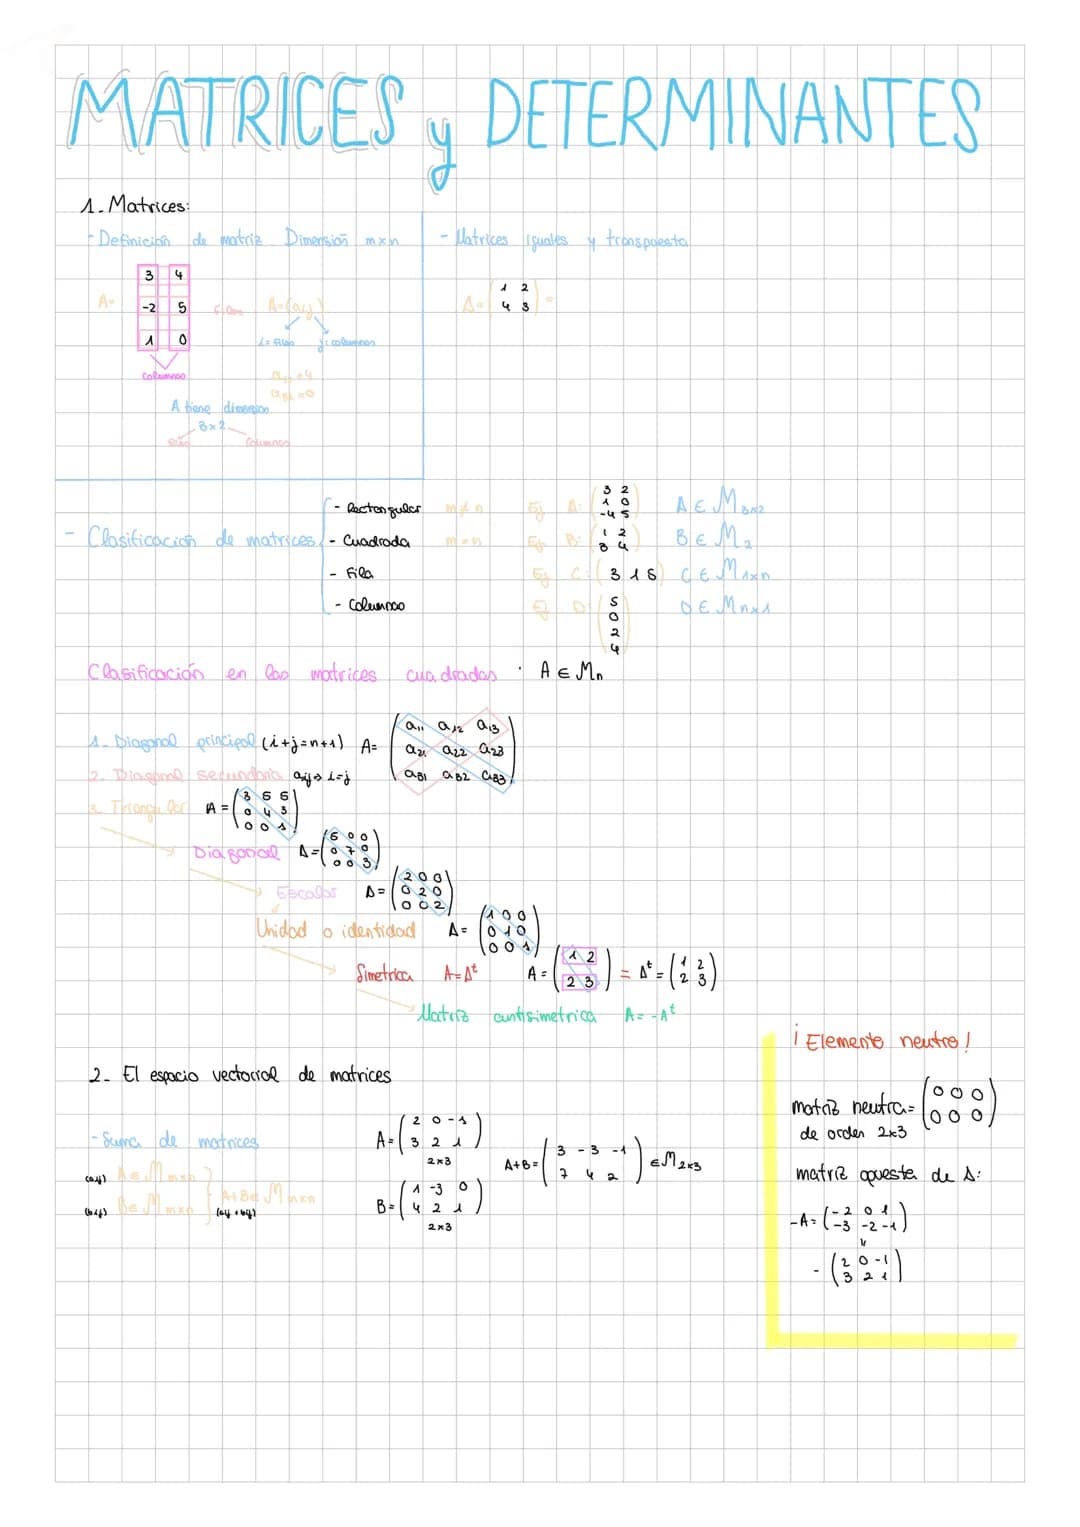 MATRICES y DETERMINANTES
1. Matrices:
- Definición de matriz Dimensión m×n
A=
3 4
-2 5
1 0
filas
columnas
A=(aij)
i= filas j= columnas
a12=4
a32=0
A tiene dimension
3×2
filas columnas
- Matrices iguales y transpuesta
A= ( 1 2
4 3 ) =
- Clasificación de matrices
- Rectangular m≠n Ej A: ( 3 2
1 0
-4 5 ) A ∈ M3×2
- Cuadrada m=n Ej B: ( 1 2
3 4 ) B ∈ M2
- Fila Ej C: ( 3 1 5 ) C ∈ M1×n
- Columna Ej D: ( 5
0
2
4 ) D ∈ Mn×1
Clasificación en las matrices cuadradas · A ∈ Mn
1. Diagonal principal (i+j=n+1) A= ( a11 a12 a13
a21 a22 a23
a31 a32 a33 )
2. Diagonal secundaria aij → i=j
3. Triangular A = ( 3 5 6
0 4 3
0 0 1 )
Diagonal A= ( 6 0 0
0 7 0
0 0 3 )
Escalar A= ( 2 0 0
0 2 0
0 0 2 )
Unidad o identidad A= ( 1 0 0
0 1 0
0 0 1 )
Simetrica A=Aᵗ A = ( 1 2
2 3 ) = Aᵗ = ( 1 2
2 3 )
Matriz antisimetrica A= -Aᵗ
2- El espacio vectorial de matrices
- Suma de matrices
(aij) A ∈ Mm×n
(bij) B ∈ Mm×n
A+B ∈ Mm×n
(aij + bij)
A= ( 2 0 -1
3 2 1 )
2×3
B= ( 1 -3 0
4 2 1 )
2×3
A+B= ( 3 -3 -1
7 4 2 ) ∈ M2×3
¡ Elemento neutro !
matriz neutra= ( 0 0 0
0 0 0 )
de orden 2×3
matriz opuesta de A:
-A= ( -2 0 1
-3 -2 -1 )
- ( 2 0 -1
3 2 1 )